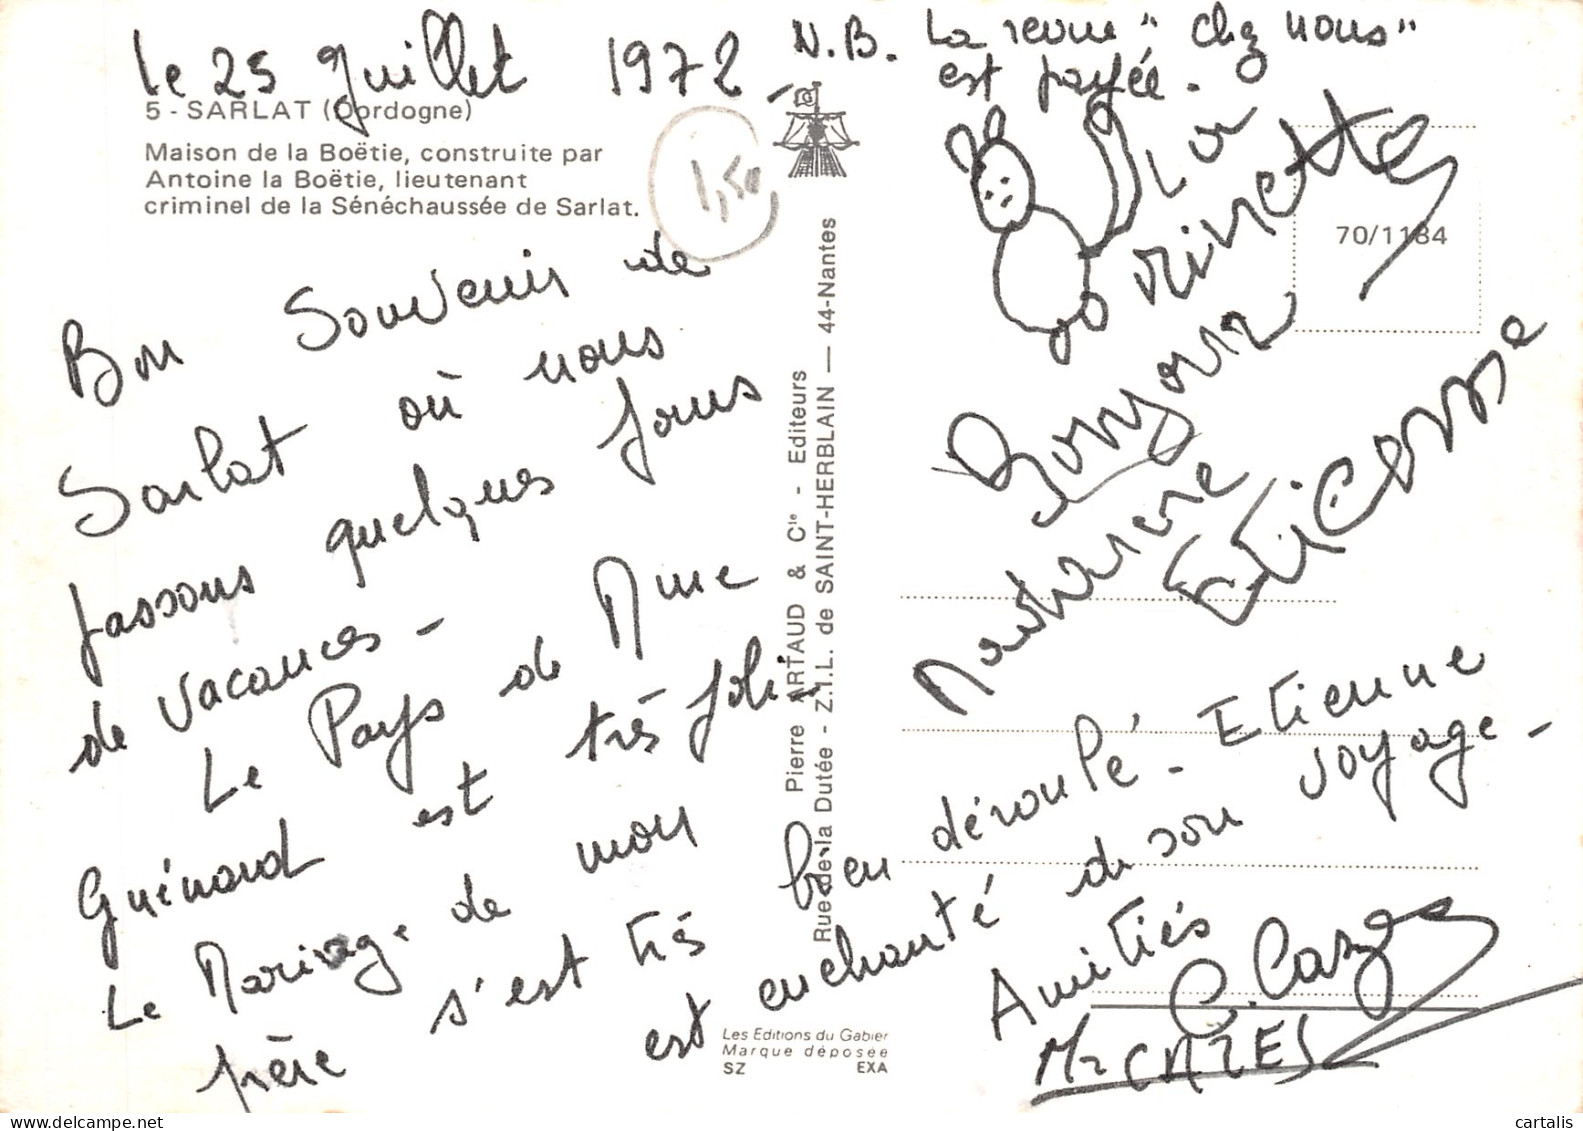 Le 25 Juillet 1972 -
N.B. La revue "chez nous"
est payée -
5 - SARLAT (Dordogne)
Maison de la Boëtie, construite par
Antoine la Boëtie, lieutenant
criminel de la Sénéchaussée de Sarlat.
1,50
Bon Souvenir de
Sarlat où nous
passons quelques jours
de vacances -
Le Pays de Mme
Guénard est très joli -
Le Mariage de mon
frère s'est très bien déroulé - Etienne
est enchanté de son voyage -
Amitiés
C. Cazes
Mr CAZES
La
MINETTE
Bonjour
Etienne
70/1184
Pierre ARTAUD & Cie - Editeurs
Rue de la Dutée - Z.I.L. de SAINT-HERBLAIN — 44-Nantes
Les Editions du Gabier
Marque déposée
SZ EXA
cartalis